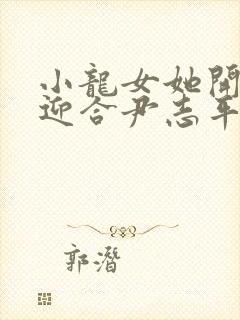 小龍女她開
迎合尹志平
郭潛